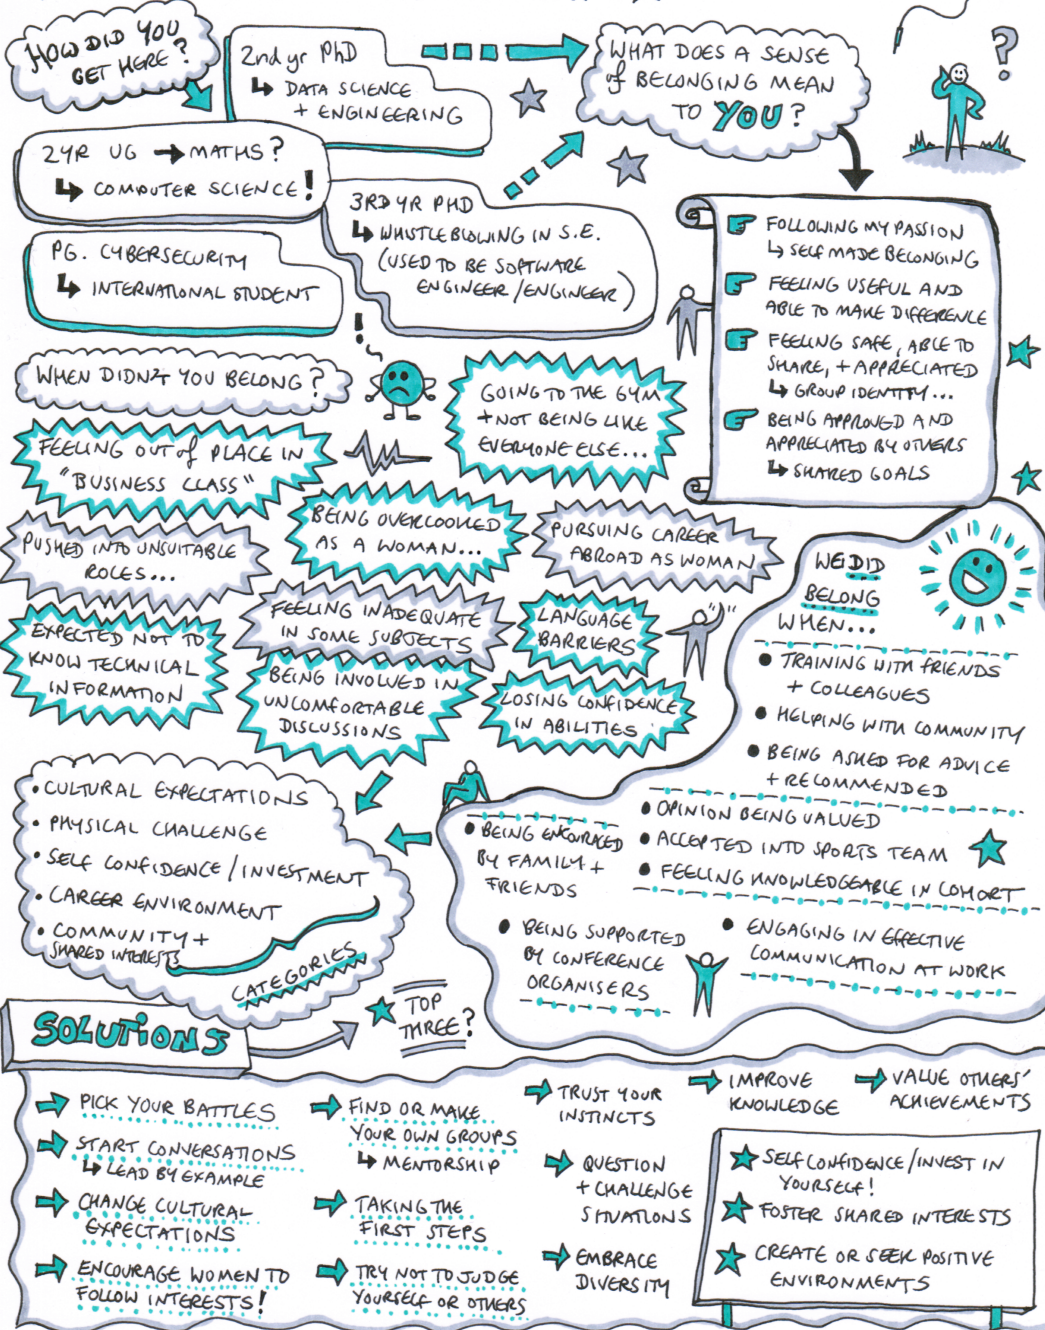 HOW DID YOU
GET HERE?
2nd yr PhD
↳ DATA SCIENCE
+ ENGINEERING
WHAT DOES A SENSE
of BELONGING MEAN
TO YOU?
?
2YR UG → MATHS?
↳ COMPUTER SCIENCE!
3RD YR PHD
↳ WHISTLEBLOWING IN S.E.
(USED TO BE SOFTWARE
ENGINEER/ENGINEER)
PG. CYBERSECURITY
↳ INTERNATIONAL STUDENT
FOLLOWING MY PASSION
↳ SELF MADE BELONGING
FEELING USEFUL AND
ABLE TO MAKE DIFFERENCE
FEELING SAFE, ABLE TO
SHARE, + APPRECIATED
↳ GROUP IDENTITY...
BEING APPROVED AND
APPRECIATED BY OTHERS
↳ SHARED GOALS
WHEN DIDN'T YOU BELONG?
!
GOING TO THE GYM
+ NOT BEING LIKE
EVERYONE ELSE...
FEELING OUT of PLACE IN
"BUSINESS CLASS"
BEING OVERLOOKED
AS A WOMAN...
PURSUING CAREER
ABROAD AS WOMAN
PUSHED INTO UNSUITABLE
ROLES...
FEELING INADEQUATE
IN SOME SUBJECTS
LANGUAGE
BARRIERS
EXPECTED NOT TO
KNOW TECHNICAL
INFORMATION
BEING INVOLVED IN
UNCOMFORTABLE
DISCUSSIONS
LOSING CONFIDENCE
IN ABILITIES
WE DID
BELONG
WHEN...
• TRAINING WITH FRIENDS
+ COLLEAGUES
• HELPING WITH COMMUNITY
• BEING ASKED FOR ADVICE
+ RECOMMENDED
• OPINION BEING VALUED
• ACCEPTED INTO SPORTS TEAM
• FEELING KNOWLEDGEABLE IN COHORT
• BEING ENCOURAGED
BY FAMILY +
FRIENDS
• BEING SUPPORTED
BY CONFERENCE
ORGANISERS
• ENGAGING IN EFFECTIVE
COMMUNICATION AT WORK
• CULTURAL EXPECTATIONS
• PHYSICAL CHALLENGE
• SELF CONFIDENCE/INVESTMENT
• CAREER ENVIRONMENT
• COMMUNITY +
SHARED INTERESTS
CATEGORIES
TOP
THREE?
SOLUTIONS
PICK YOUR BATTLES
START CONVERSATIONS
↳ LEAD BY EXAMPLE
CHANGE CULTURAL
EXPECTATIONS
ENCOURAGE WOMEN TO
FOLLOW INTERESTS!
FIND OR MAKE
YOUR OWN GROUPS
↳ MENTORSHIP
TAKING THE
FIRST STEPS
TRY NOT TO JUDGE
YOURSELF OR OTHERS
TRUST YOUR
INSTINCTS
QUESTION
+ CHALLENGE
SITUATIONS
EMBRACE
DIVERSITY
IMPROVE
KNOWLEDGE
VALUE OTHERS'
ACHIEVEMENTS
SELF CONFIDENCE/INVEST IN
YOURSELF!
FOSTER SHARED INTERESTS
CREATE OR SEEK POSITIVE
ENVIRONMENTS